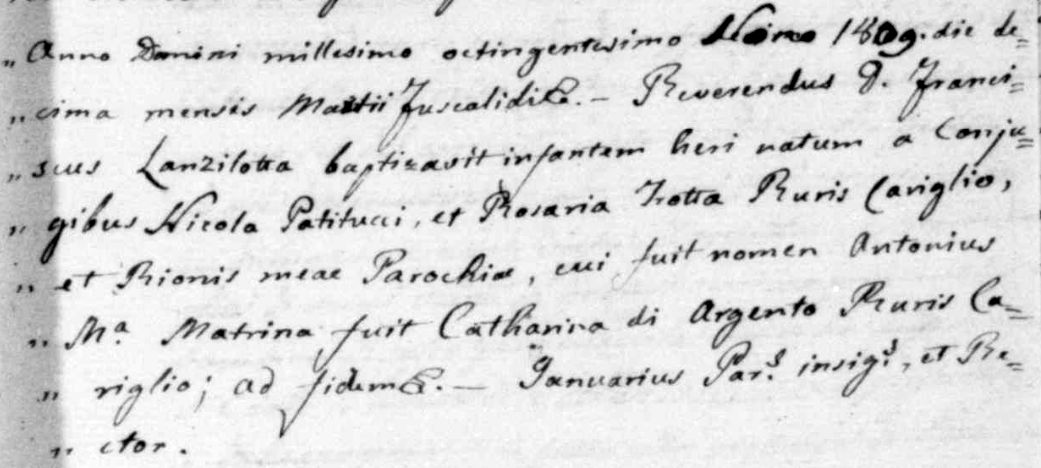 „ Anno Domini millesimo octingentesimo Nono 1809. die de=
„ cima mensis Martii Fuscaldi &. – Reverendus D. Franci=
„ scus Lanzilotta baptizavit infantem heri natum a Conju=
„ gibus Nicola Patitucci, et Rosaria Trotta Ruris Cariglio,
„ et Rionis meae Parochiae, cui fuit nomen Antonius
„ Mª. Matrina fuit Catharina di Argento Ruris Ca=
„ riglio; ad fidem &. – Januarius Par.s insig.s, et Re=
„ ctor.